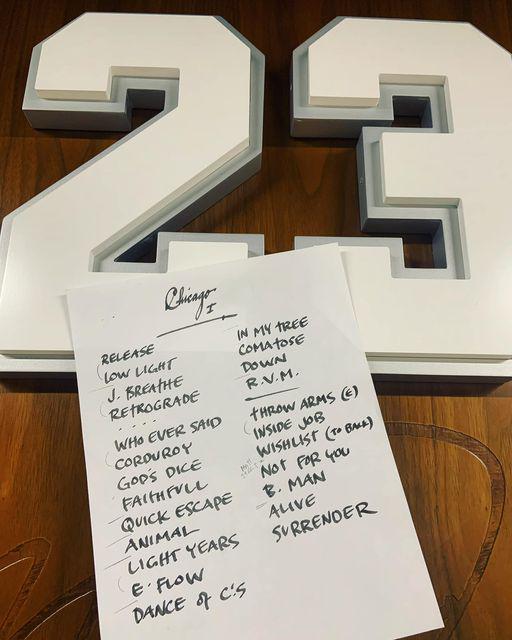 23
Chicago
I
RELEASE
LOW LIGHT
J. BREATHE
RETROGRADE
. . . . .
WHO EVER SAID
CORDUROY
GOD'S DICE
FAITHFULL
QUICK ESCAPE
ANIMAL
LIGHT YEARS
E. FLOW
DANCE of C'S
IN MY TREE
COMATOSE
DOWN
R.V.M.
THROW ARMS (E)
INSIDE JOB
WISHLIST (TO BACK)
NOT FOR YOU
B. MAN
ALIVE
SURRENDER